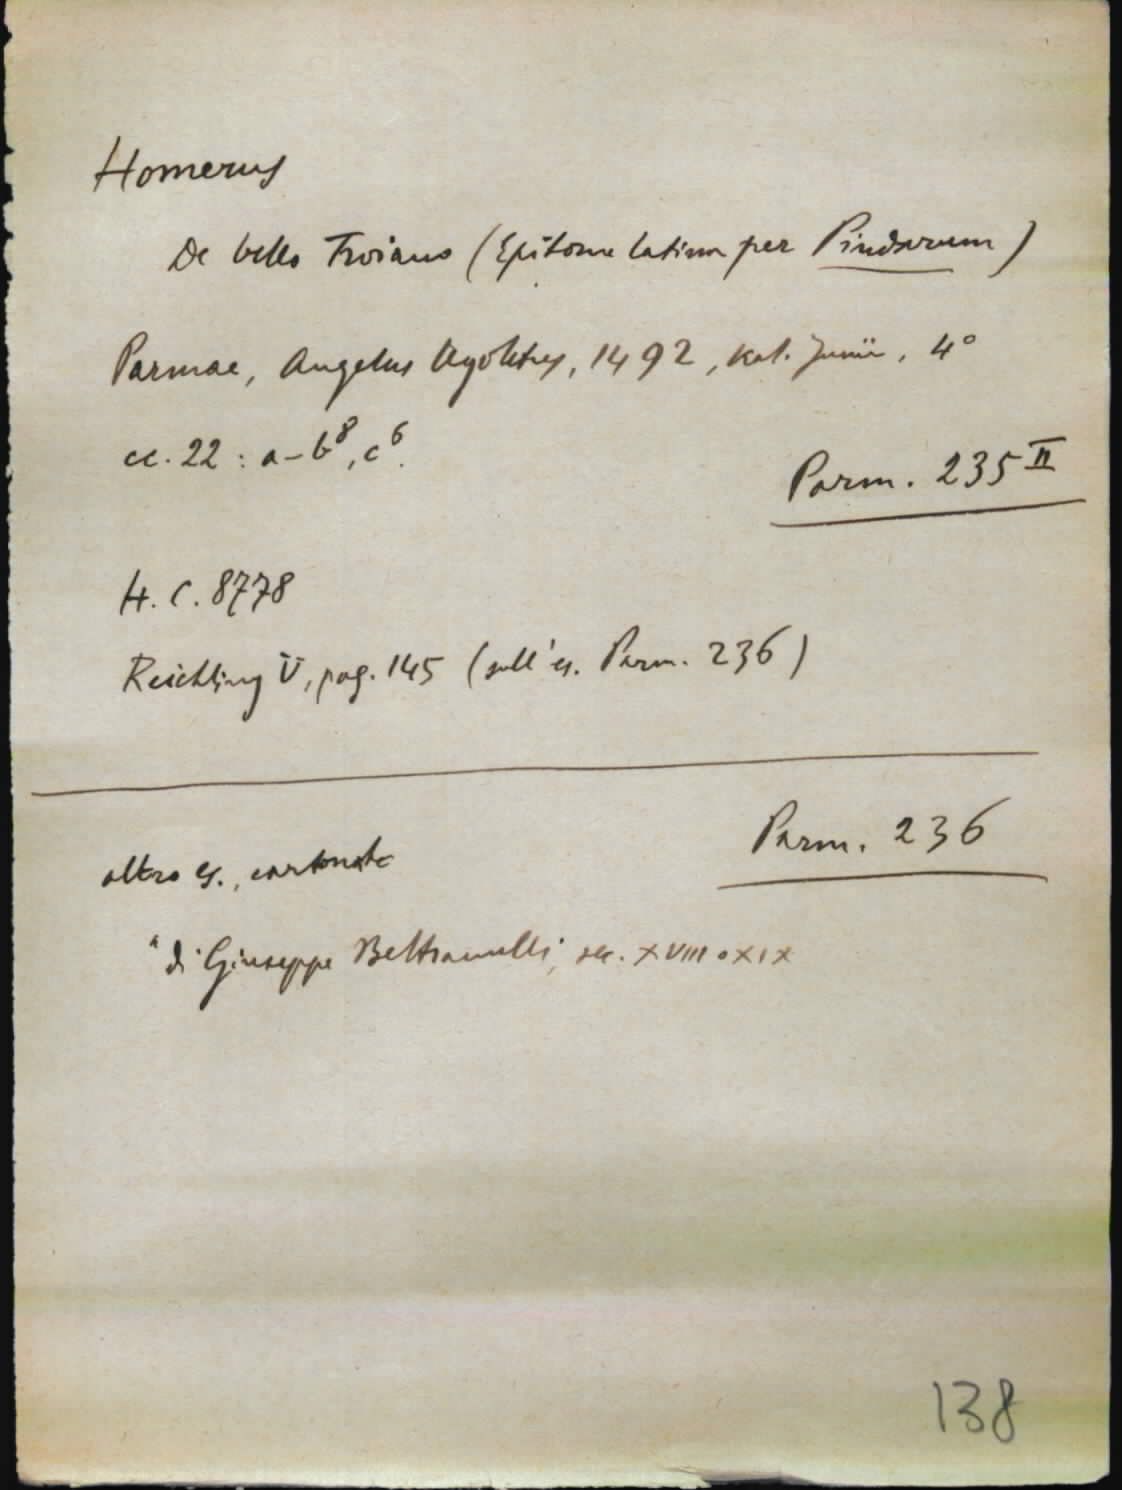 Homerus
De bello Troiano (Epitome latina per Pindarum)
Parmae, Angelus Ugoletus, 1492, kal. Junii, 4°
cc. 22 : a-b⁸, c⁶.
Parm. 235 II
H. C. 8778
Reichling V, pag. 145 (sull'es. Parm. 236)
Parm. 236
altro es., cartonato
"di Giuseppe Beltramelli, sec. XVIII o XIX
138